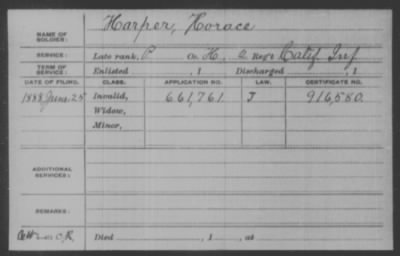 NAME OF SOLDIER: Harper, Horace
SERVICE: Late rank, P Co. H, 2 Reg't Calif Inf
TERM OF SERVICE: Enlisted , 1 Discharged , 1
DATE OF FILING. CLASS. APPLICATION NO. LAW. CERTIFICATE NO.
1888 June 25 Invalid, 661,761 J 916,580.
Widow,
Minor,
ADDITIONAL SERVICES:
REMARKS:
Died , 1 , at